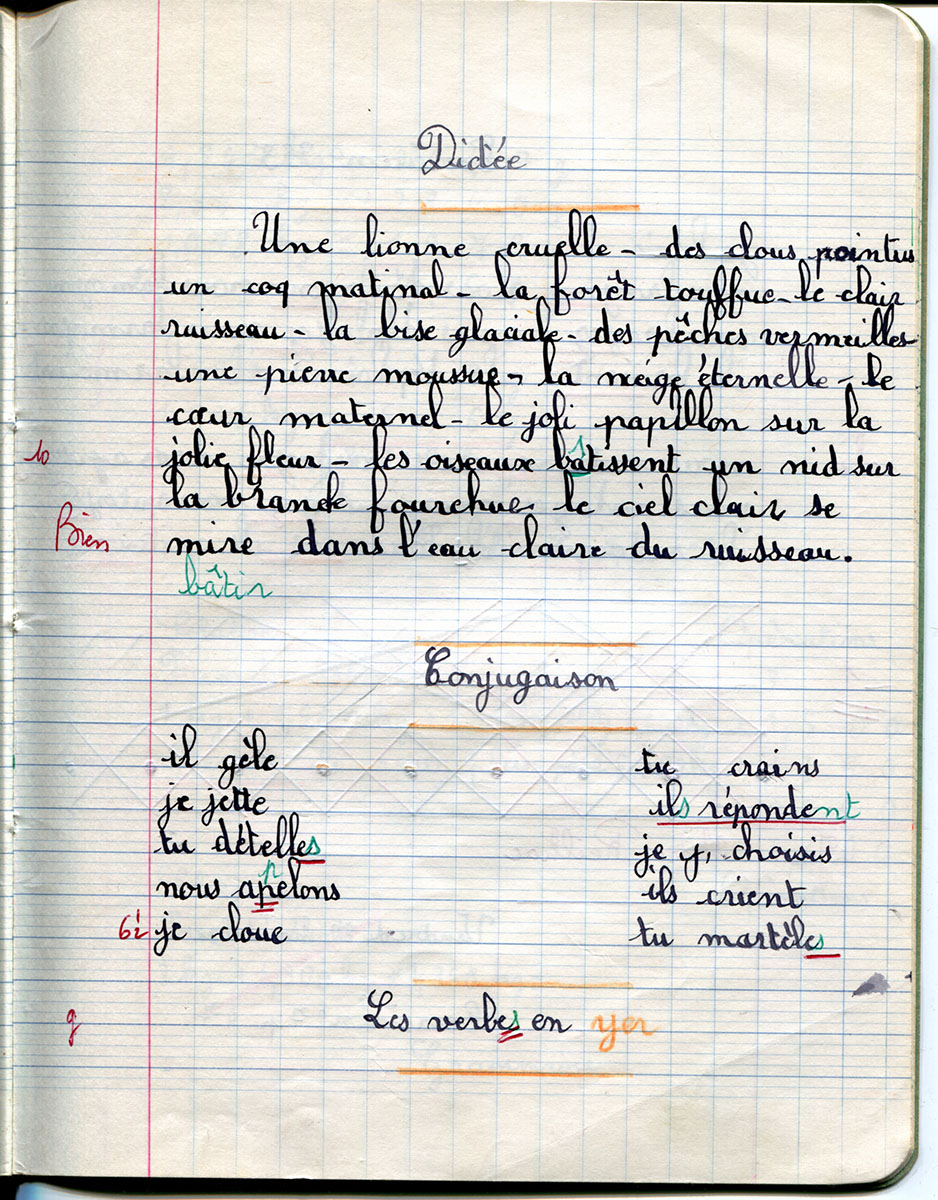 Dictée
Une lionne cruelle - des clous pointus
un coq matinal - la forêt touffue - le clair
ruisseau - la bise glaciale - des pêches vermeilles
une pierre moussue - la neige éternelle - le
cœur maternel - le joli papillon sur la
10 jolie fleur - les oiseaux bâtissent un nid sur
la branche fourchue. le ciel clair se
Bien mire dans l'eau claire du ruisseau.
bâtir
Conjugaison
il gèle tu crains
je jette ils répondent
tu dételles je choisis
nous appelons ils crient
je cloue tu martèles
Les verbes en yer